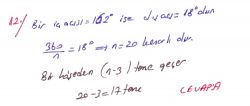 12-) Bir iç açısı = 162° ise dış açısı = 18° olur
360/n = 18° ⇒ n = 20 kenarlı olur.
Bir köşeden (n-3) tane geçer
20-3 = 17 tane
CEVAP A